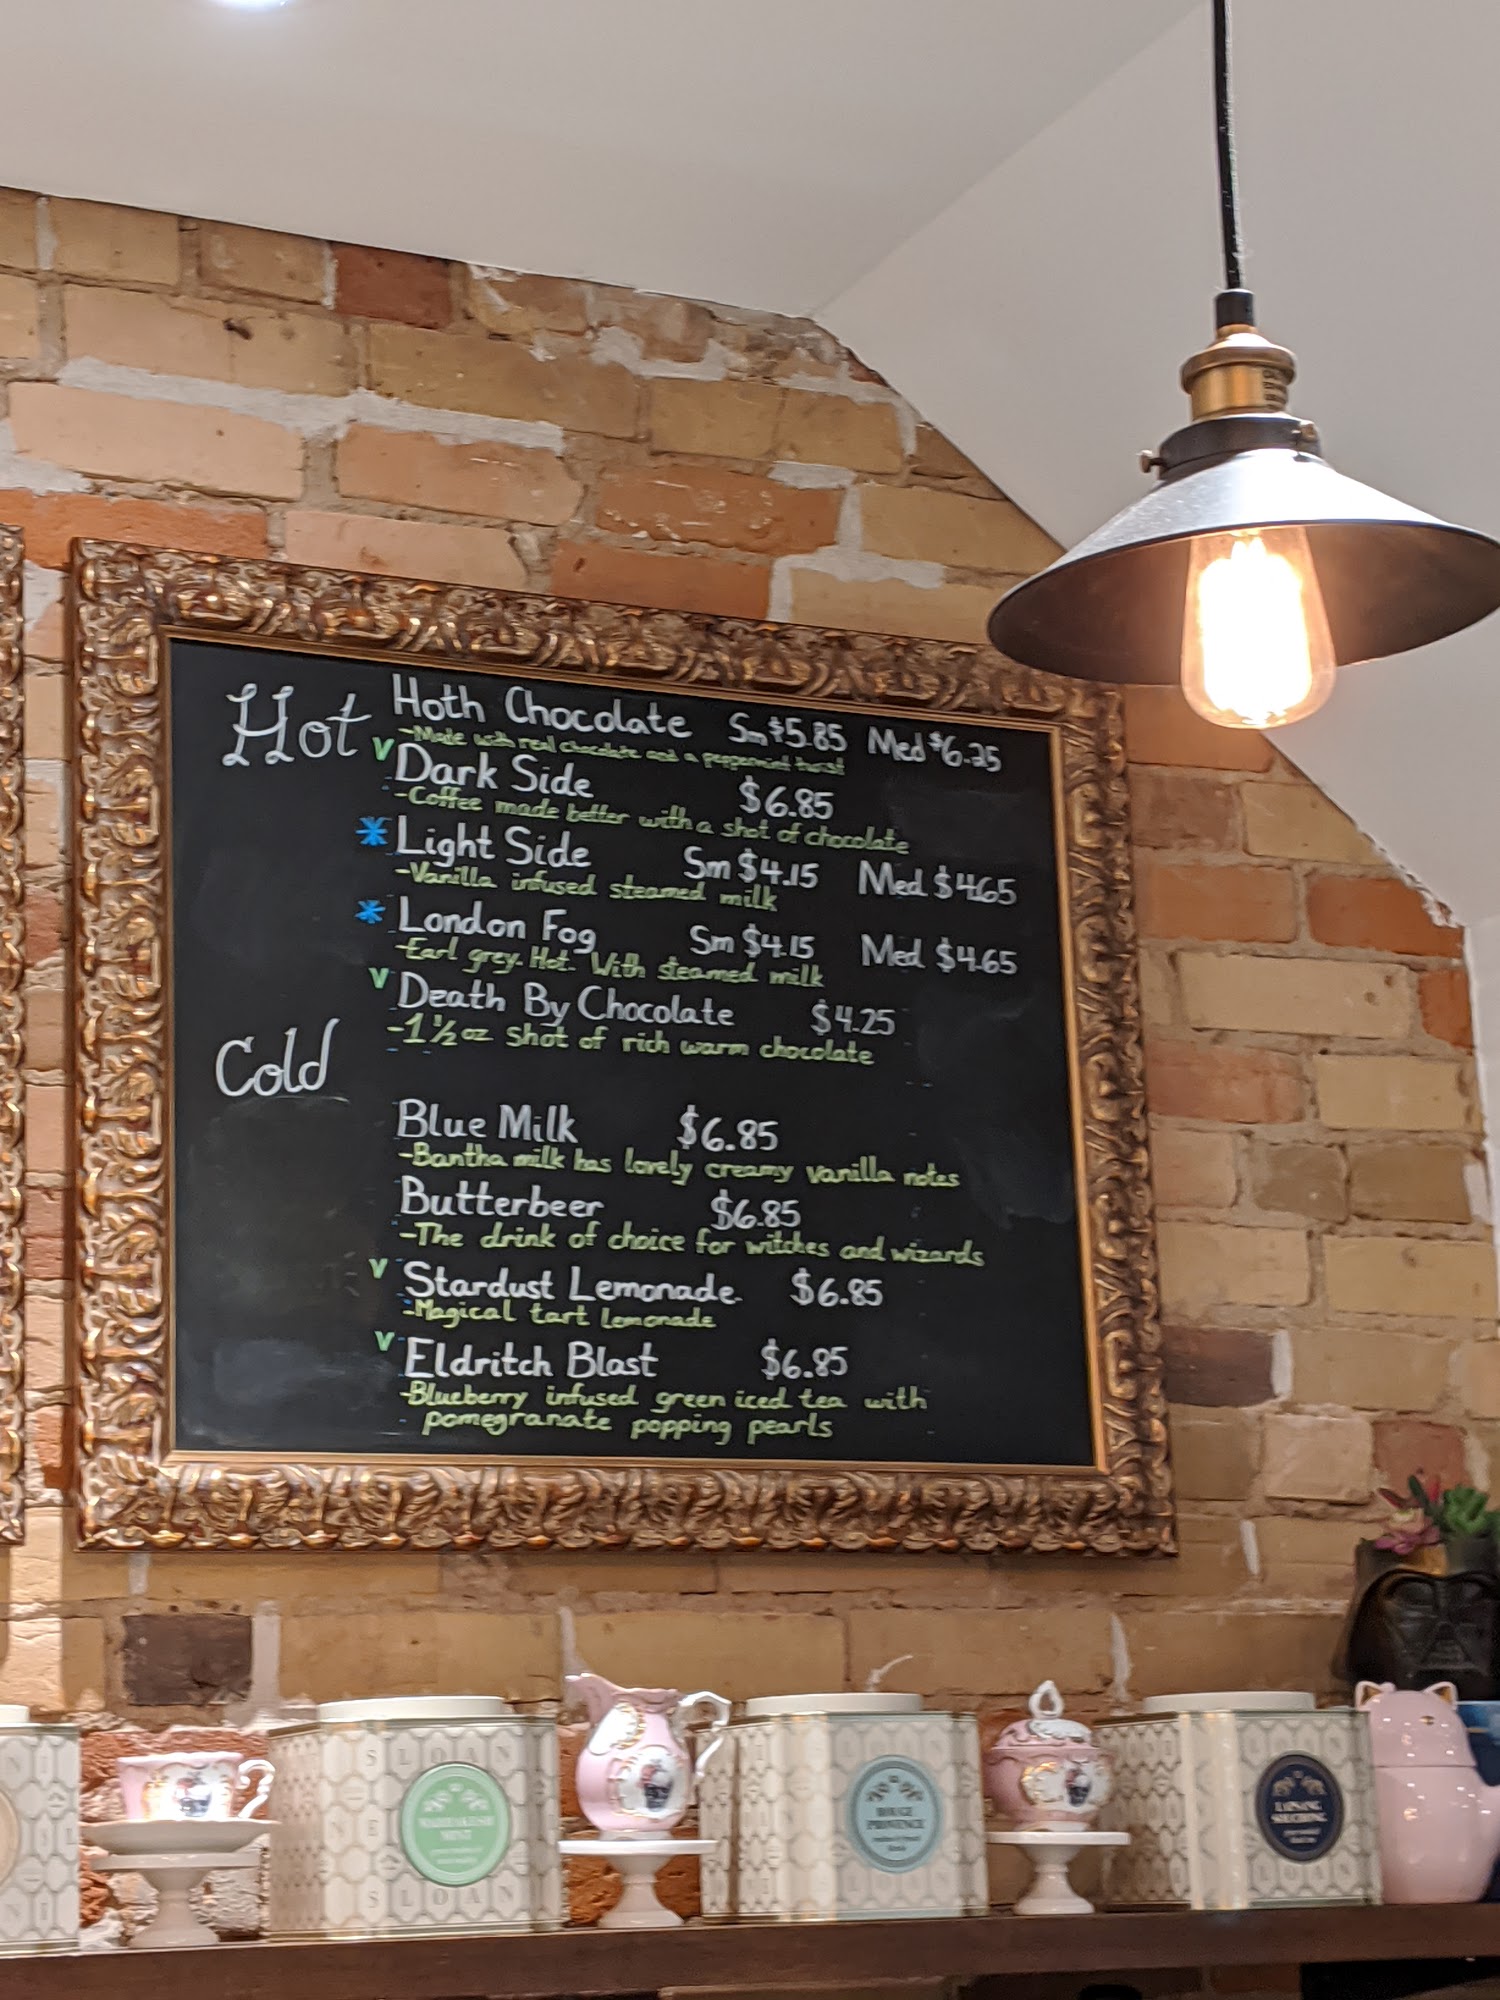 Hot
Hoth Chocolate Sm $5.85 Med $6.25
-Made with real chocolate and a peppermint twist
V Dark Side $6.85
-Coffee made better with a shot of chocolate
* Light Side Sm $4.15 Med $4.65
-Vanilla infused steamed milk
* London Fog Sm $4.15 Med $4.65
-Earl grey. Hot. With steamed milk
V Death By Chocolate $4.25
-1 ½ oz shot of rich warm chocolate
Cold
Blue Milk $6.85
-Bantha milk has lovely creamy vanilla notes
Butterbeer $6.85
-The drink of choice for witches and wizards
V Stardust Lemonade $6.85
-Magical tart lemonade
V Eldritch Blast $6.85
-Blueberry infused green iced tea with
pomegranate popping pearls
SLOAN
MARRAKESH
MINT
SLOAN
ROUGE
PROVENCE
LOAN